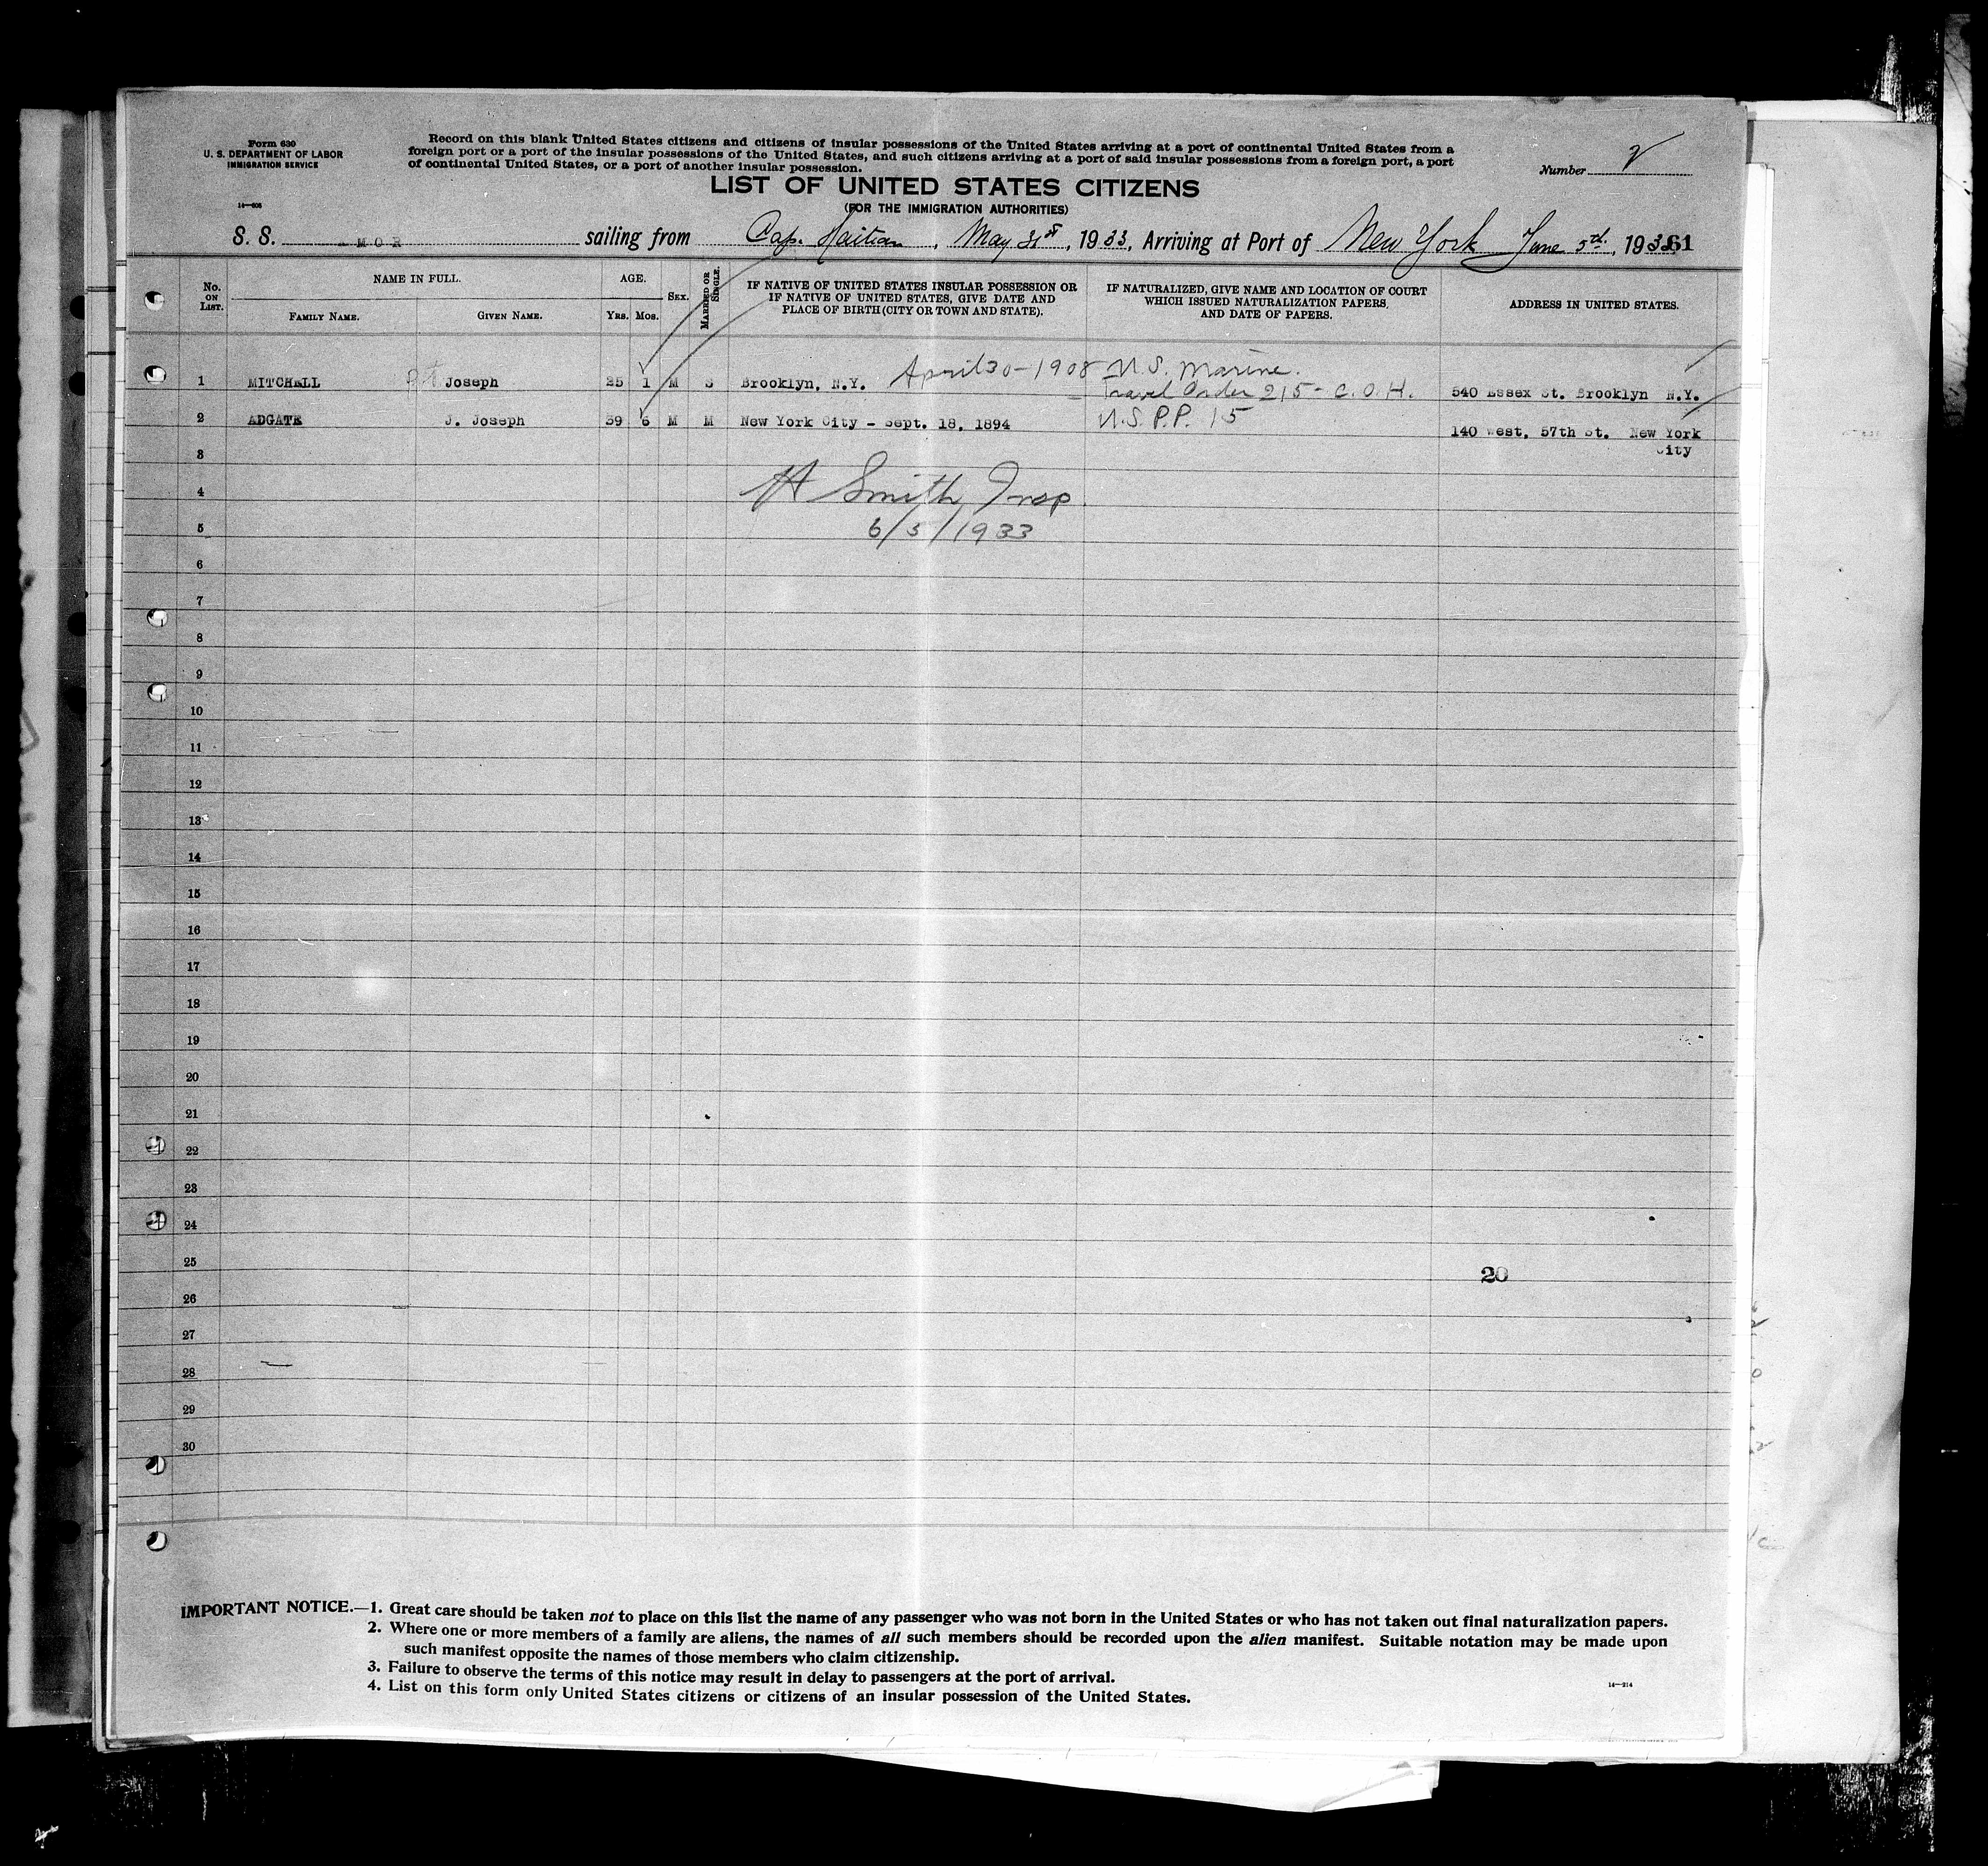 Form 630
U. S. DEPARTMENT OF LABOR
IMMIGRATION SERVICE
Record on this blank United States citizens and citizens of insular possessions of the United States arriving at a port of continental United States from a
foreign port or a port of the insular possessions of the United States, and such citizens arriving at a port of said insular possessions from a foreign port, a port
of continental United States, or a port of another insular possession.
Number 2
LIST OF UNITED STATES CITIZENS
(FOR THE IMMIGRATION AUTHORITIES)
S. S. AMOR sailing from Cap. Haitian, May 31st, 1933, Arriving at Port of New York June 5th, 1933
61
No. ON LIST.
NAME IN FULL.
FAMILY NAME.
GIVEN NAME.
AGE.
YRS. MOS.
SEX.
MARRIED OR SINGLE.
IF NATIVE OF UNITED STATES INSULAR POSSESSION OR
IF NATIVE OF UNITED STATES, GIVE DATE AND
PLACE OF BIRTH (CITY OR TOWN AND STATE).
IF NATURALIZED, GIVE NAME AND LOCATION OF COURT
WHICH ISSUED NATURALIZATION PAPERS,
AND DATE OF PAPERS.
ADDRESS IN UNITED STATES.
1 MITCHELL Joseph 25 1 M S Brooklyn, N.Y. April 30-1908 U.S. Marine.
Travel Order 215 - C.O.H. 540 Essex St. Brooklyn N.Y.
2 ADGATE J. Joseph 39 6 M M New York City - Sept. 18, 1894 U.S.P.P. 15
140 West. 57th St. New York
City
3
4
H Smith, Insp.
5
6/5/1933
6
7
8
9
10
11
12
13
14
15
16
17
18
19
20
21
22
23
24
25
20
26
27
28
29
30
IMPORTANT NOTICE.—1. Great care should be taken not to place on this list the name of any passenger who was not born in the United States or who has not taken out final naturalization papers.
2. Where one or more members of a family are aliens, the names of all such members should be recorded upon the alien manifest. Suitable notation may be made upon
such manifest opposite the names of those members who claim citizenship.
3. Failure to observe the terms of this notice may result in delay to passengers at the port of arrival.
4. List on this form only United States citizens or citizens of an insular possession of the United States.
14—214